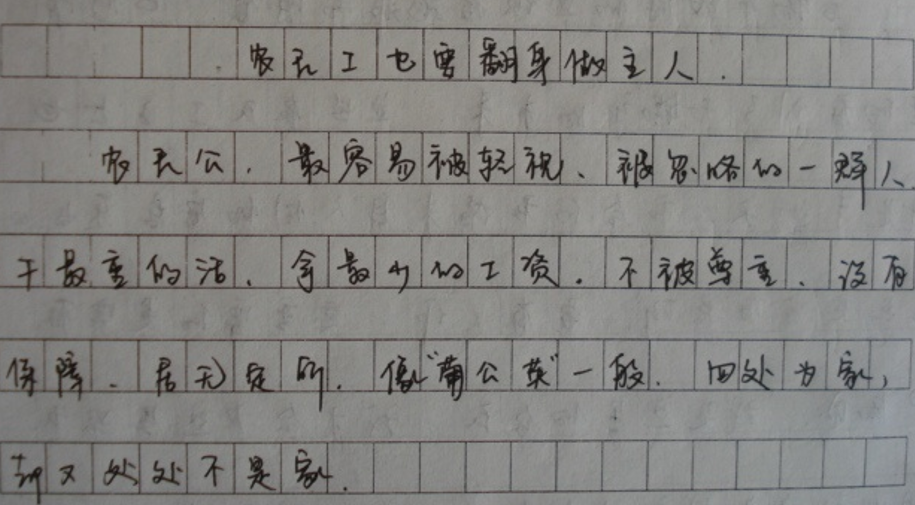 农民工也要翻身做主人.
农民公.最容易被轻视、被忽略的一群人
干最重的活.拿最少的工资.不被尊重.没有
保障.居无定所.像“蒲公英”一般.四处为家,
却又处处不是家.